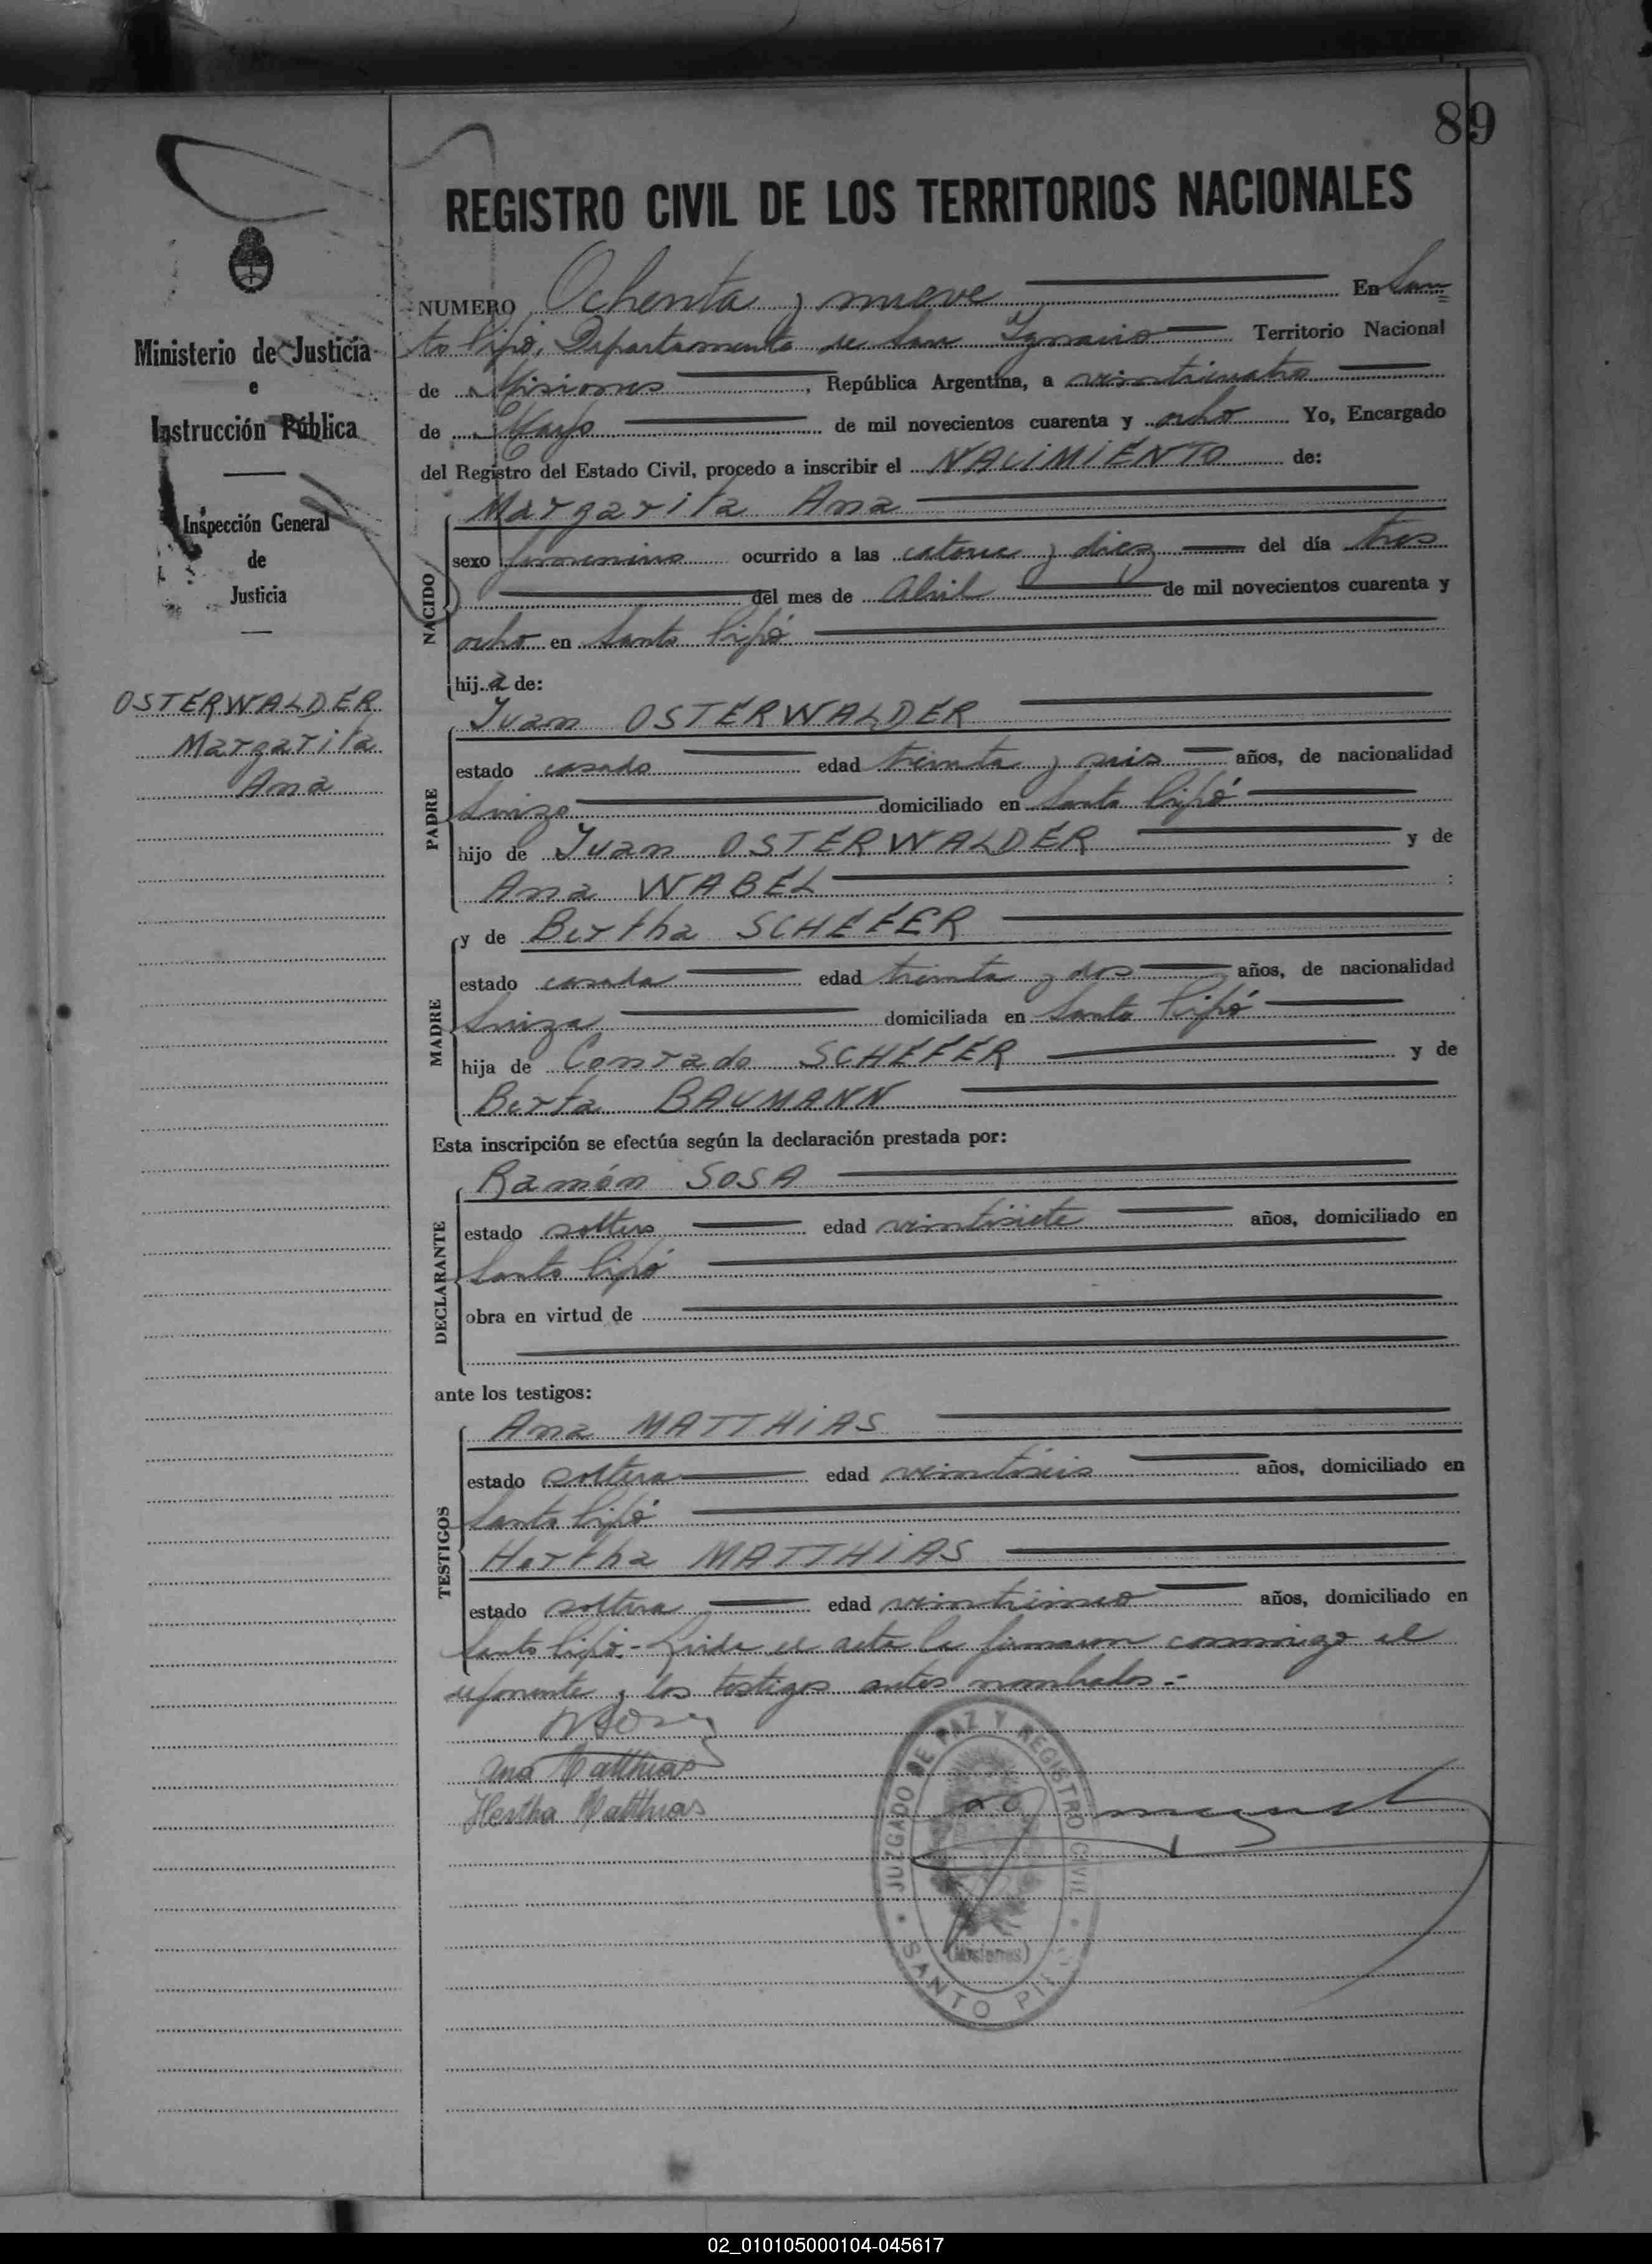 89
REGISTRO CIVIL DE LOS TERRITORIOS NACIONALES
Ministerio de Justicia
e
Instrucción Pública
Inspección General
de
Justicia
OSTERWALDER
Margarita
Ana
NUMERO Ochenta y nueve En San=
to Pipó, Departamento de San Ignacio Territorio Nacional
de Misiones, República Argentina, a veinticuatro
de Mayo de mil novecientos cuarenta y ocho Yo, Encargado
del Registro del Estado Civil, procedo a inscribir el NACIMIENTO de:
NACIDO
Margarita Ana
sexo femenino ocurrido a las catorce y diez del día tres
del mes de Abril de mil novecientos cuarenta y
ocho en Santo Pipó
hija de:
PADRE
Juan OSTERWALDER
estado casado edad treinta y seis años, de nacionalidad
Suizo domiciliado en Santo Pipó
hijo de Juan OSTERWALDER y de
Ana WABEL
MADRE
y de Bertha SCHEFER
estado casada edad treinta y dos años, de nacionalidad
Suiza domiciliada en Santo Pipó
hija de Conrado SCHEFER y de
Berta BAUMANN
Esta inscripción se efectúa según la declaración prestada por:
DECLARANTE
Ramón SOSA
estado soltero edad veintisiete años, domiciliado en
Santo Pipó
obra en virtud de
ante los testigos:
TESTIGOS
Ana MATTHIAS
estado soltera edad veintiseis años, domiciliado en
Santo Pipó
Hertha MATTHIAS
estado soltera edad veinticinco años, domiciliado en
Santo Pipó.- Leída el acta la firmaron conmigo el
deponente y los testigos antes nombrados.-
Ana Matthias
Hertha Matthias
JUZGADO DE PAZ Y REGISTRO CIVIL
(Misiones)
SANTO PIPÓ
02_010105000104-045617